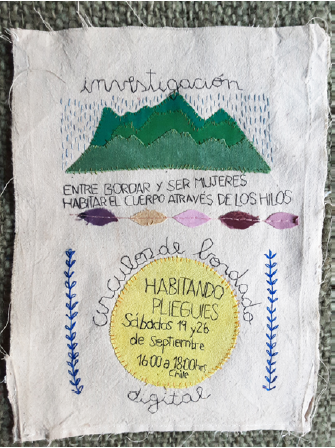 investigación
ENTRE BORDAR Y SER MUJERES
HABITAR EL CUERPO A TRAVÉS DE LOS HILOS
círculos de bordado
HABITANDO
PLIEGUES
Sábados 19 y 26
de septiembre
16:00 a 18:00 hrs
Chile
digital